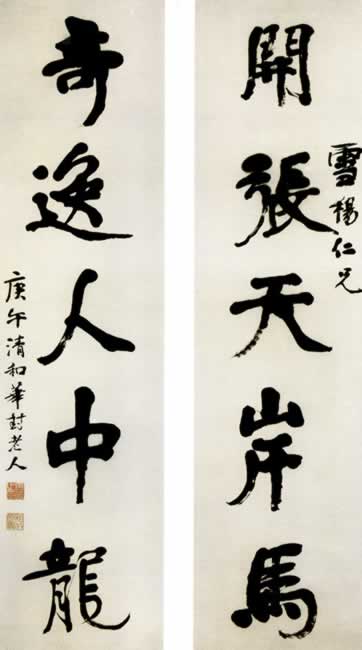 開張天岸馬
雪楊仁兄
奇逸人中龍
庚午清和華封老人